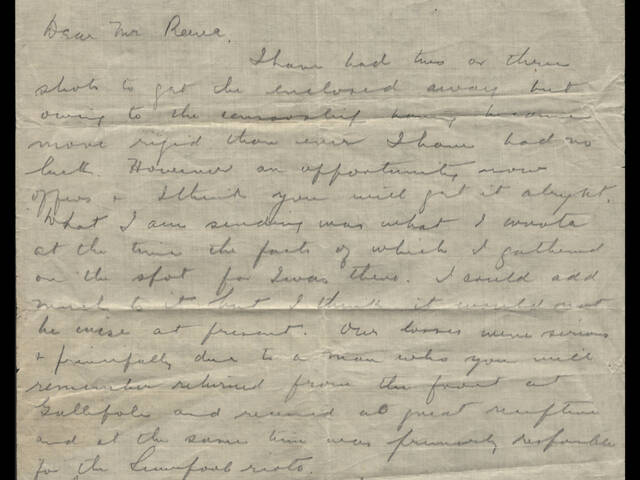 Dear Mr
I have had two or three
shots to get the enclosed away but
owing to the censorship having become
more rigid than ever I have had no
luck. However an opportunity now
offers & I think you will get it alright.
What I am sending was what I wrote
at the time the facts of which I gathered
on the spot for I was there. I could add
much to it but I think it would not
be wise at present. Our losses were serious
& principally due to a man who you will
remember returned from the front at
Gallipoli and received a great reception
and at the same time was primarily responsible
for the Liverpool riots.